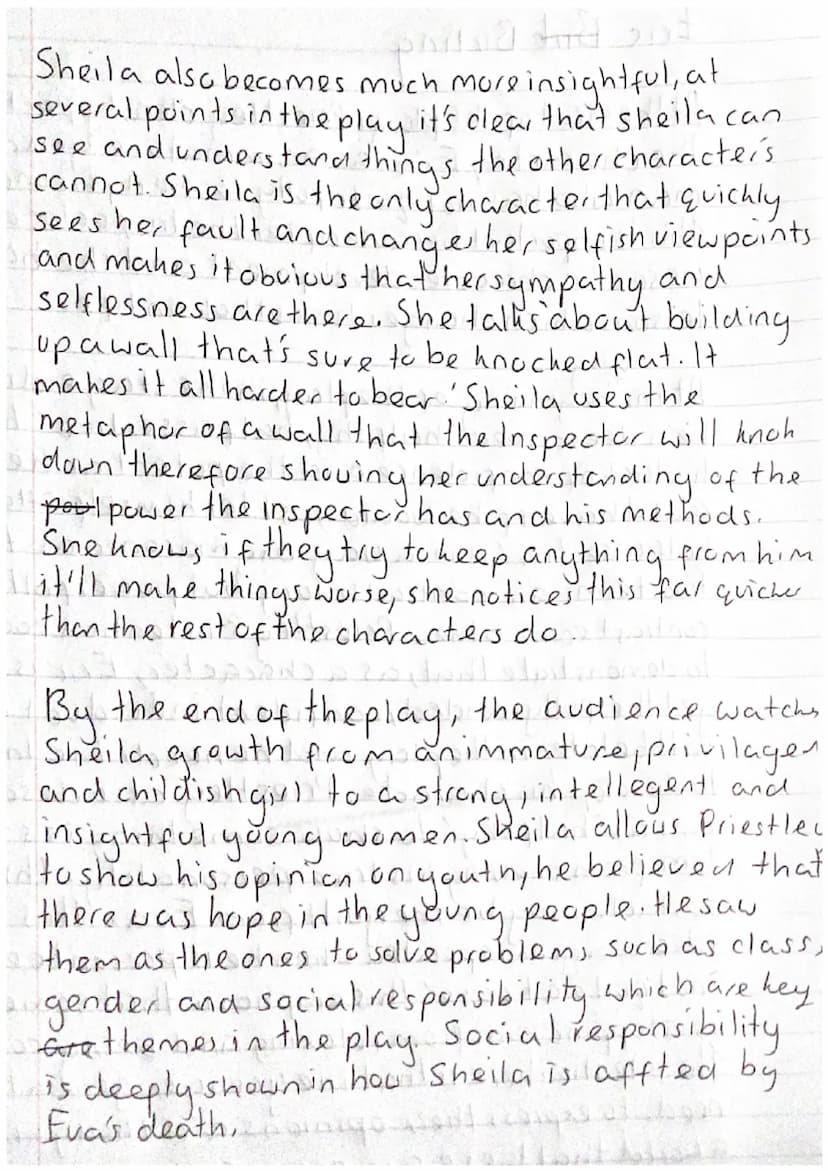 Sheila also becomes much more insightful, at
several points in the play it's clear that sheila can
see and understand things the other characters
cannot. Sheila is the only character that quickly
sees her fault and changes her selfish viewpoints
and makes it obvious that her sympathy and
selflessness are there. She talks about building
up a wall that's sure to be knocked flat. It
makes it all harder to bear.' Sheila uses the
metaphor of a wall that the Inspector will knok
down therefore showing her understanding of the
power the inspector has and his methods.
She knows if they try to keep anything from him
it'll make things worse, she notices this far quicker
than the rest of the characters do.
By the end of the play, the audience watches
Sheila growth from an immature, privilaged
and childish girl to a strong, intellegent and
insightful young women. Sheila allows Priestley
to show his opinion on youth, he believed that
there was hope in the young people. He saw
them as the ones to solve problems such as class,
gender and social responsibility which are key
themes in the play. Social responsibility
is deeply shown in how Sheila is affted by
Eva's death.